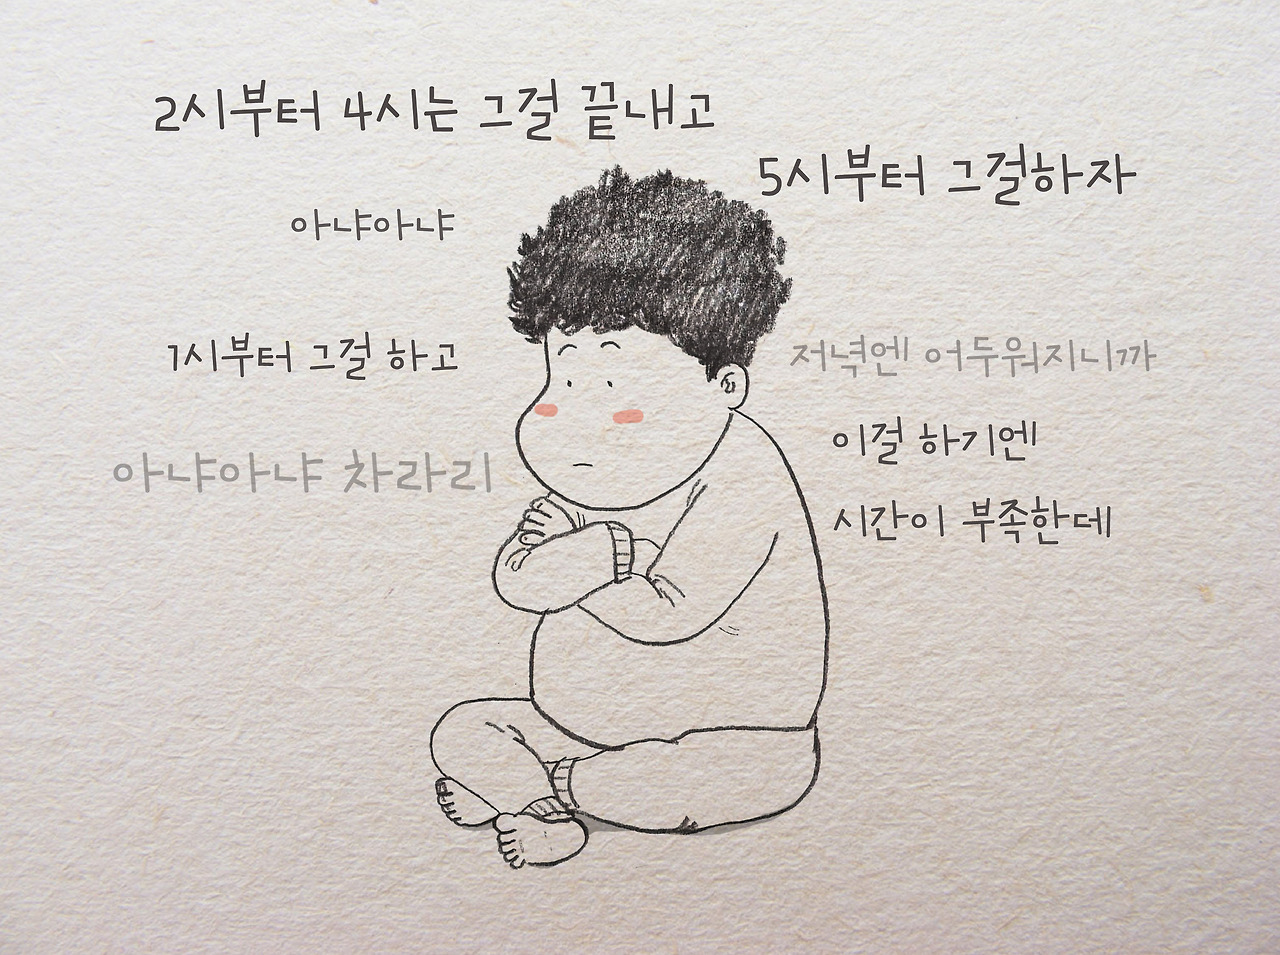 2시부터 4시는 그걸 끝내고
5시부터 그걸하자
아냐아냐
1시부터 그걸 하고
저녁엔 어두워지니까
이걸 하기엔
시간이 부족한데
아냐아냐 차라리